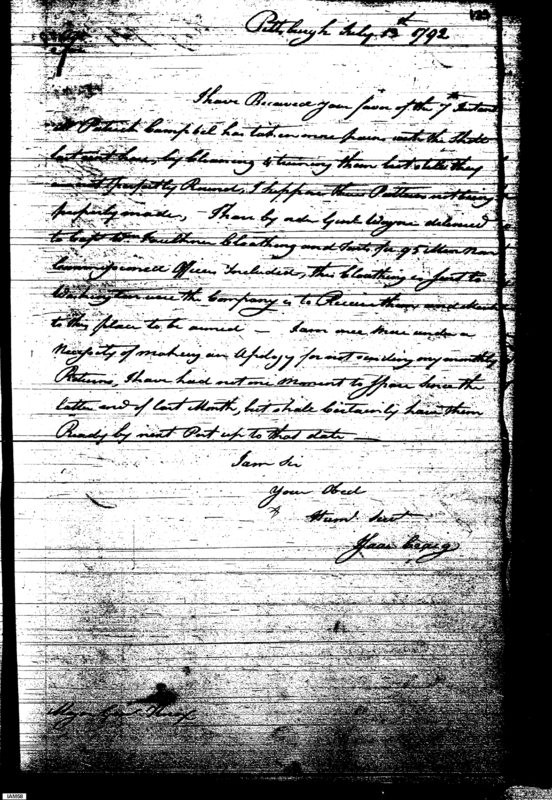 123
Pittsburgh July 13th 1792
Sir
I have Received your favor of the 7th Instant
Mr Patrick Campbel has taken more pains with the Shells
last sent here, by Cleaning & turning them but still they
are not perfectly Round, I suppose there Pattern not being
properly made, I have by order Genl. Wayne delivered
to Capt Wm Faulkner Cloathing and Tents for 95 Men Non
Commissioned Officers Included, this Cloathing is sent to
Washington were the Company is to Receive them and March
to this place to be armed — I am once More under a
Necessity of making an Apology for not sending my monthly
Returns, I have had not one Moment to Spare Since the
latter end of last Month, but shall Certainly have them
Ready by next Post up to that date —
I am Sir
Your Obed
Humb. Servt
Isaac Craig
Major Genl. Knox
IAM58